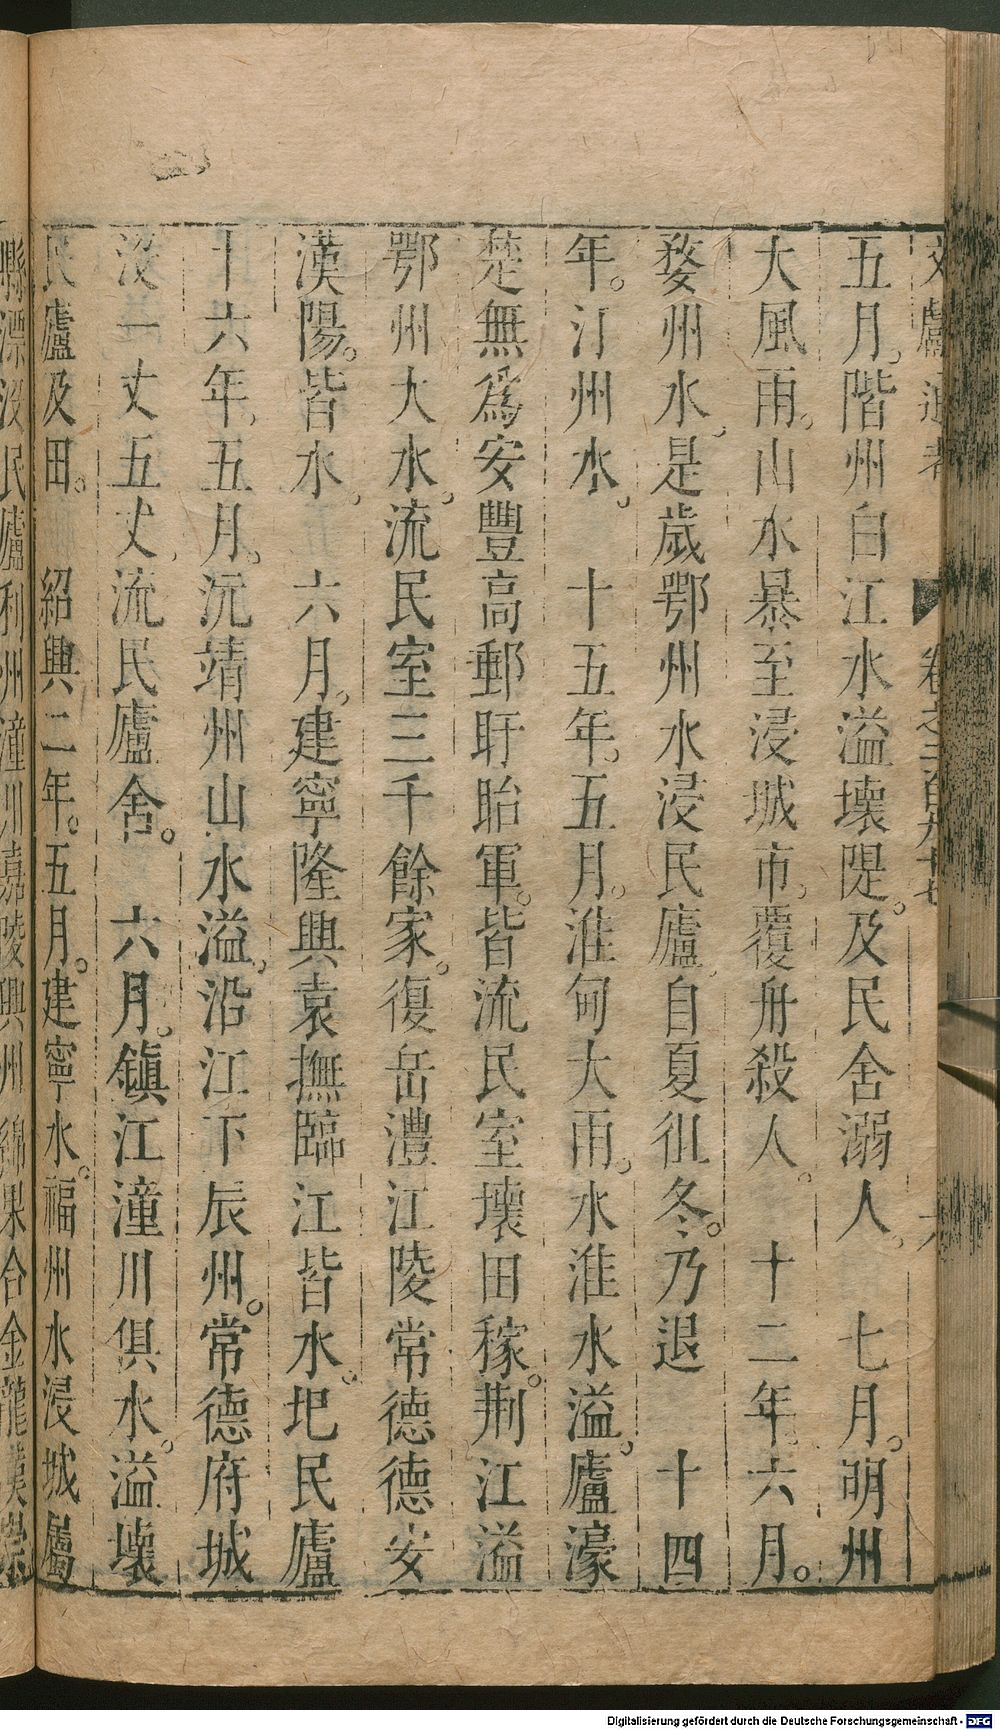 文獻通考 卷之二百九十七 六
五月。階州白江水溢壞隄。及民舍溺人。 七月。明州
大風雨。山水暴至浸城市。覆舟殺人。 十二年。六月。
婺州水。是歲鄂州水浸民廬。自夏徂冬。乃退 十四
年。汀州水。 十五年。五月。淮甸大雨。水淮水溢。廬濠
楚無爲安豐高郵盱眙軍。皆流民室壞田稼。荆江溢
鄂州大水。流民室三千餘家。復岳澧江陵常德德安
漢陽。皆水。 六月。建寧隆興袁撫臨江皆水。圯民廬
十六年。五月。沅靖州山水溢。沿江下辰州。常德府城
沒一丈五丈。流民廬舍。 六月。鎮江潼川俱水。溢壞
民廬及田。 紹興二年。五月。建寧水。福州水浸城屬
縣漂沒民廬利州潼川嘉陵興州綿果合金龍漢崇
Digitalisierung gefördert durch die Deutsche Forschungsgemeinschaft - DFG